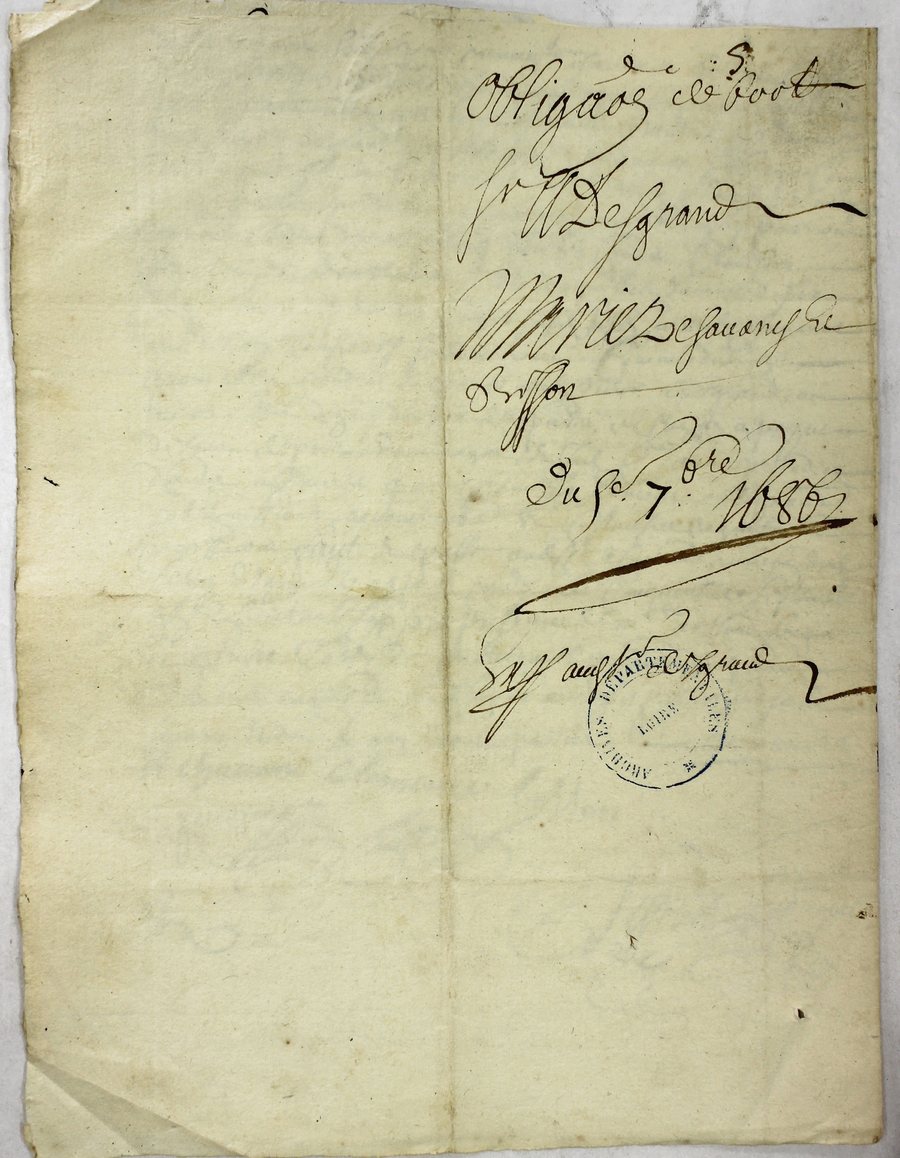 Obligaõn de 600 lt
Sr Desgrand
Marie Desavanches
Brisson
Du 5e 7bre 1686
Desgrand
ARCHIVES DÉPARTEMENTALES
LOIRE